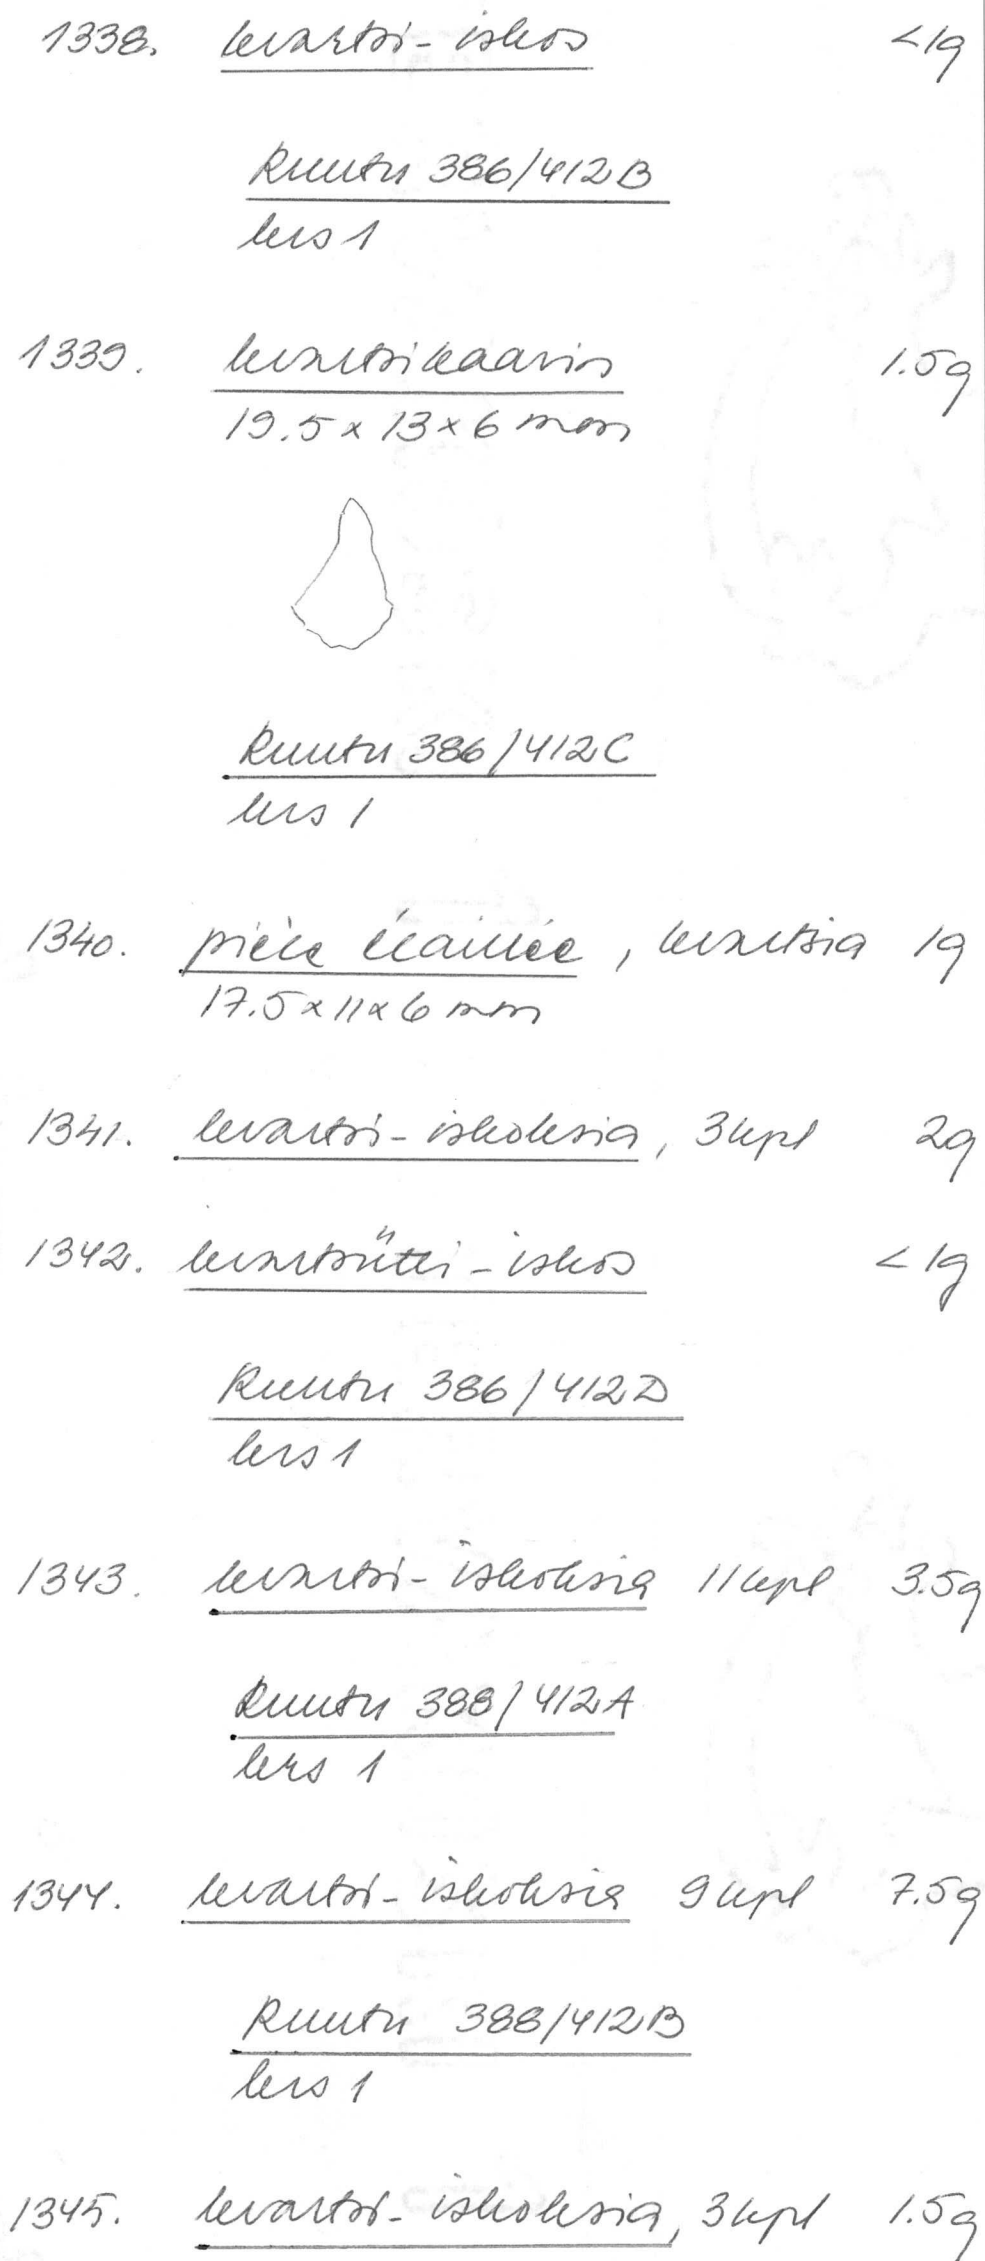 1338. kvartsi-iskos <1g
Ruutu 386/412B
krs 1
1339. kvartsikaavin 1.5g
19.5 x 13 x 6 mm
Ruutu 386/412C
krs 1
1340. pièce écaillée, kvartsia 1g
17.5 x 11 x 6 mm
1341. kvartsi-iskoksia, 3 kpl 2g
1342. kvartsiitti-iskos <1g
Ruutu 386/412D
krs 1
1343. kvartsi-iskoksia 11 kpl 3.5g
Ruutu 388/412A
krs 1
1344. kvartsi-iskoksia 9 kpl 7.5g
Ruutu 388/412B
krs 1
1345. kvartsi-iskoksia, 3 kpl 1.5g